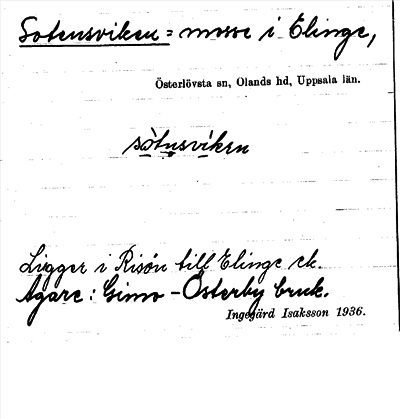 Sotensviken = mosse i Elinge,
Österlövsta sn, Olands hd, Uppsala län.
sòtusvìken
Ligger i Risön till Elinge ek.
Ägare: Gimo-Österby bruk.
Ingegärd Isaksson 1936.